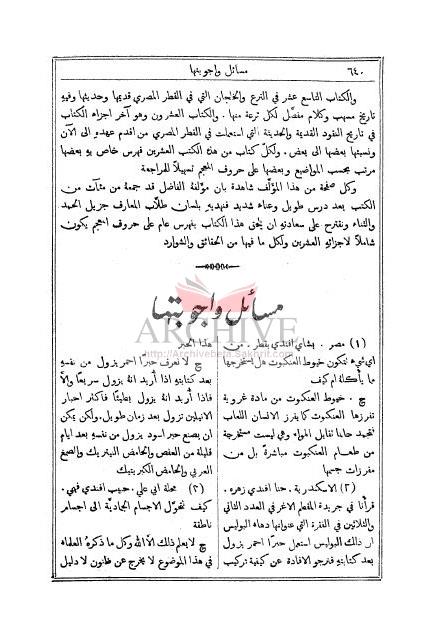 ٦٤٠ مسائل واجوبتها
والكتاب التاسع عشر في الترع والخلجان التي في القطر المصري قديمها وحديثها وفيه
تاريخ مسهب وكلام مفصَّل لكل ترعة منها. والكتاب العشرون وهو آخر اجزاء الكتاب
في تاريخ النقود القديمة والحديثة التي استعملت في القطر المصري من اقدم عهده الى الآن
ونسبتها بعضها الى بعض. ولكل كتاب من هذه الكتب العشرين فهرس خاص به بعضها
مرتب بحسب المواضيع وبعضها على حروف المعجم تسهيلاً للمراجعة
وكل صفحة من هذا المؤلَّف شاهدة بان مؤلفهُ الفاضل قد جمعه من مئات من
الكتب بعد درس طويل وعناء شديد فنهديهِ بلسان طلَّاب المعارف جزيل الحمد
والثناء ونقترح على سعادتهِ ان يلحق هذا الكتاب بفهرس عام على حروف المعجم يكون
شاملاً لاجزائهِ العشرين ولكل ما فيها من الحقائق والشوارد
مسائل واجوبتها
ARCHIVE
http://Archivebeta.Sakhrit.com
(١) مصر. بشاي افندي بقطر. من
اي شيء تتكون خيوط العنكبوت هل تستخرجها
ما يأكلهُ ام كيف
ج. خيوط العنكبوت من مادة غروية
تفرزها العنكبوت كما يفرز الانسان اللعاب
فتجمد حالما تقابل المواء وهي ليست مستخرجة
من طعام العنكبوت مباشرةً بل من
مفرزات جسمها
(٢) الاسكندرية. حنا افندي زهره.
قرأنا في جريدة المقطم الاغر في العدد الثاني
والثلاثين في النقرة التي عنوانها دهاه البوليس
ان ذلك البوليس استعمل حبرًا احمر يزول
بعد كتابتهِ فنرجو الافادة عن كيفية تركيب
هذا الحبر
ج لا نعرف حبرًا احمر يزول من نفسهِ
بعد كتابتهِ اذا أُريد انهُ يزول سريعًا والاَّ
فاذا أُريد انهُ يزول بطيئًا فاكثر احبار
الانيلين تزول بعد زمان طويل. ولكن يمكن
ان يصنع حبر اسود يزول من نفسهِ بعد ايام
قليلة من العفص والحامض النيتريك والصمغ
العربي والحامض الكبريتيك
(٣) محلة ابي علي. حبيب افندي فهمي.
كيف تتحوَّل الاجسام الجاديَّة الى اجسام
ناطقة
ج لا يعلم ذلك الاَّ الله وكل ما ذكرهُ العلماء
في هذا الموضوع لا يخرج عن ظنون لا دليل